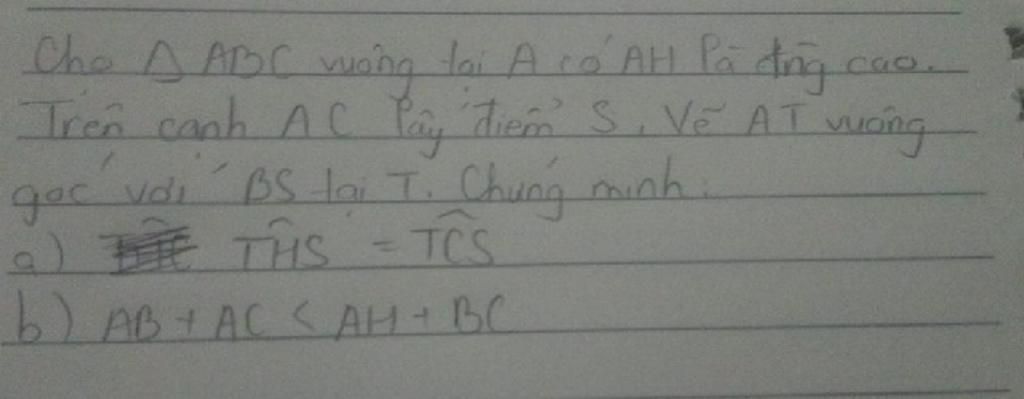 Cho Δ ABC vuông tại A có AH là đg̃ cao.
Trên cạnh AC lấy điểm S. Vẽ AT vuông
góc với BS tại T. Chứng minh:
a) THS = TCS
b) AB + AC < AH + BC